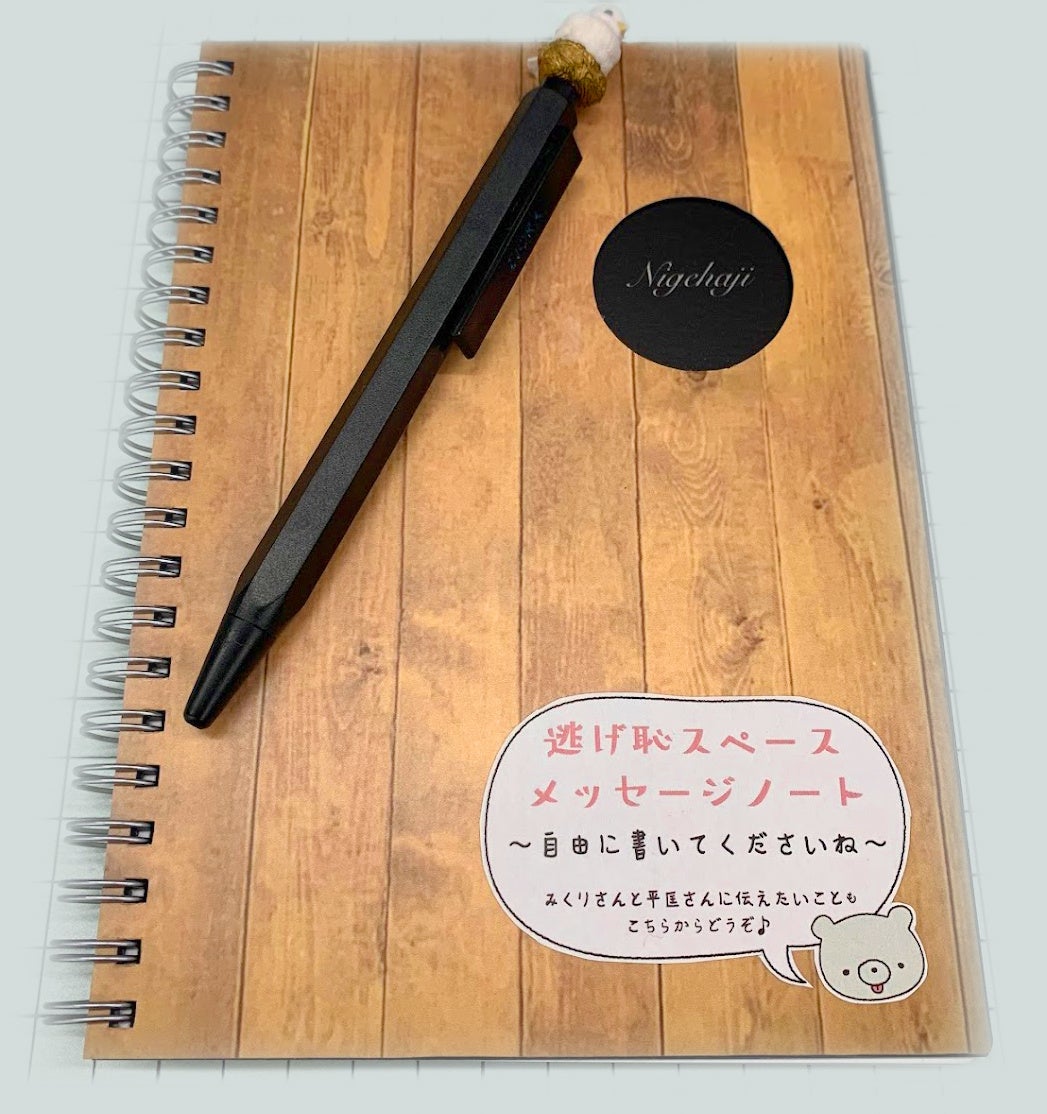 Nigehaji
逃げ恥スペース
メッセージノート
～自由に書いてくださいね～
みくりさんと平匡さんに伝えたいことも
こちらからどうぞ♪